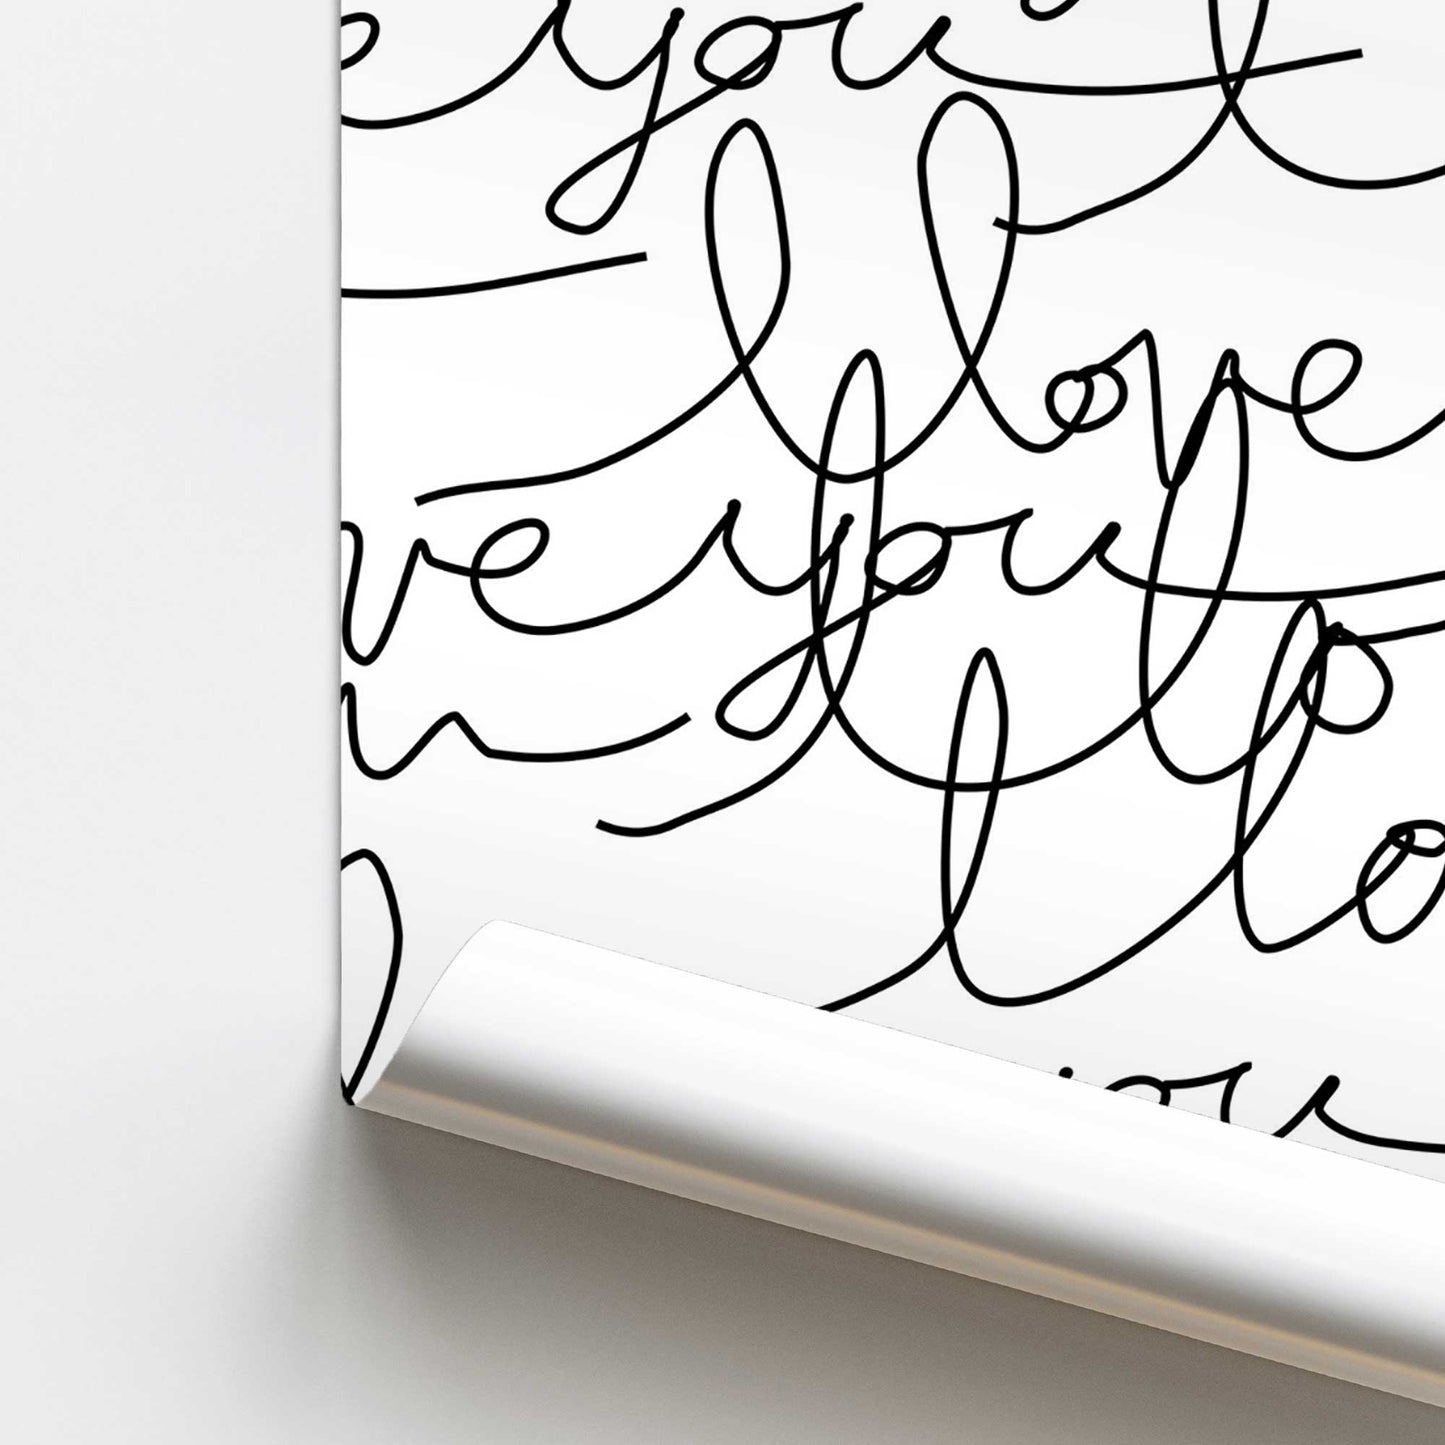 e you I
I love
ve you I
I lo
you